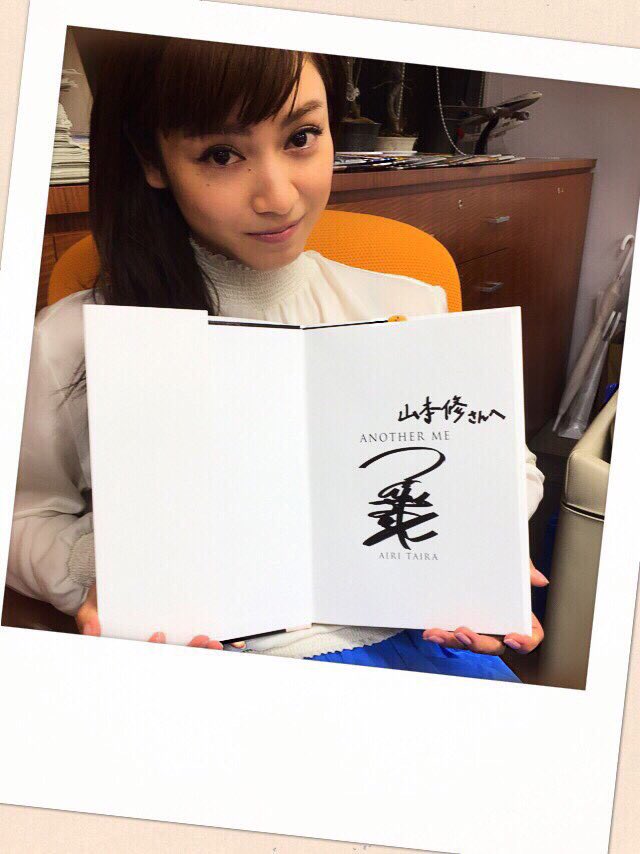 山本修さんへ
ANOTHER ME
AIRI TAIRA